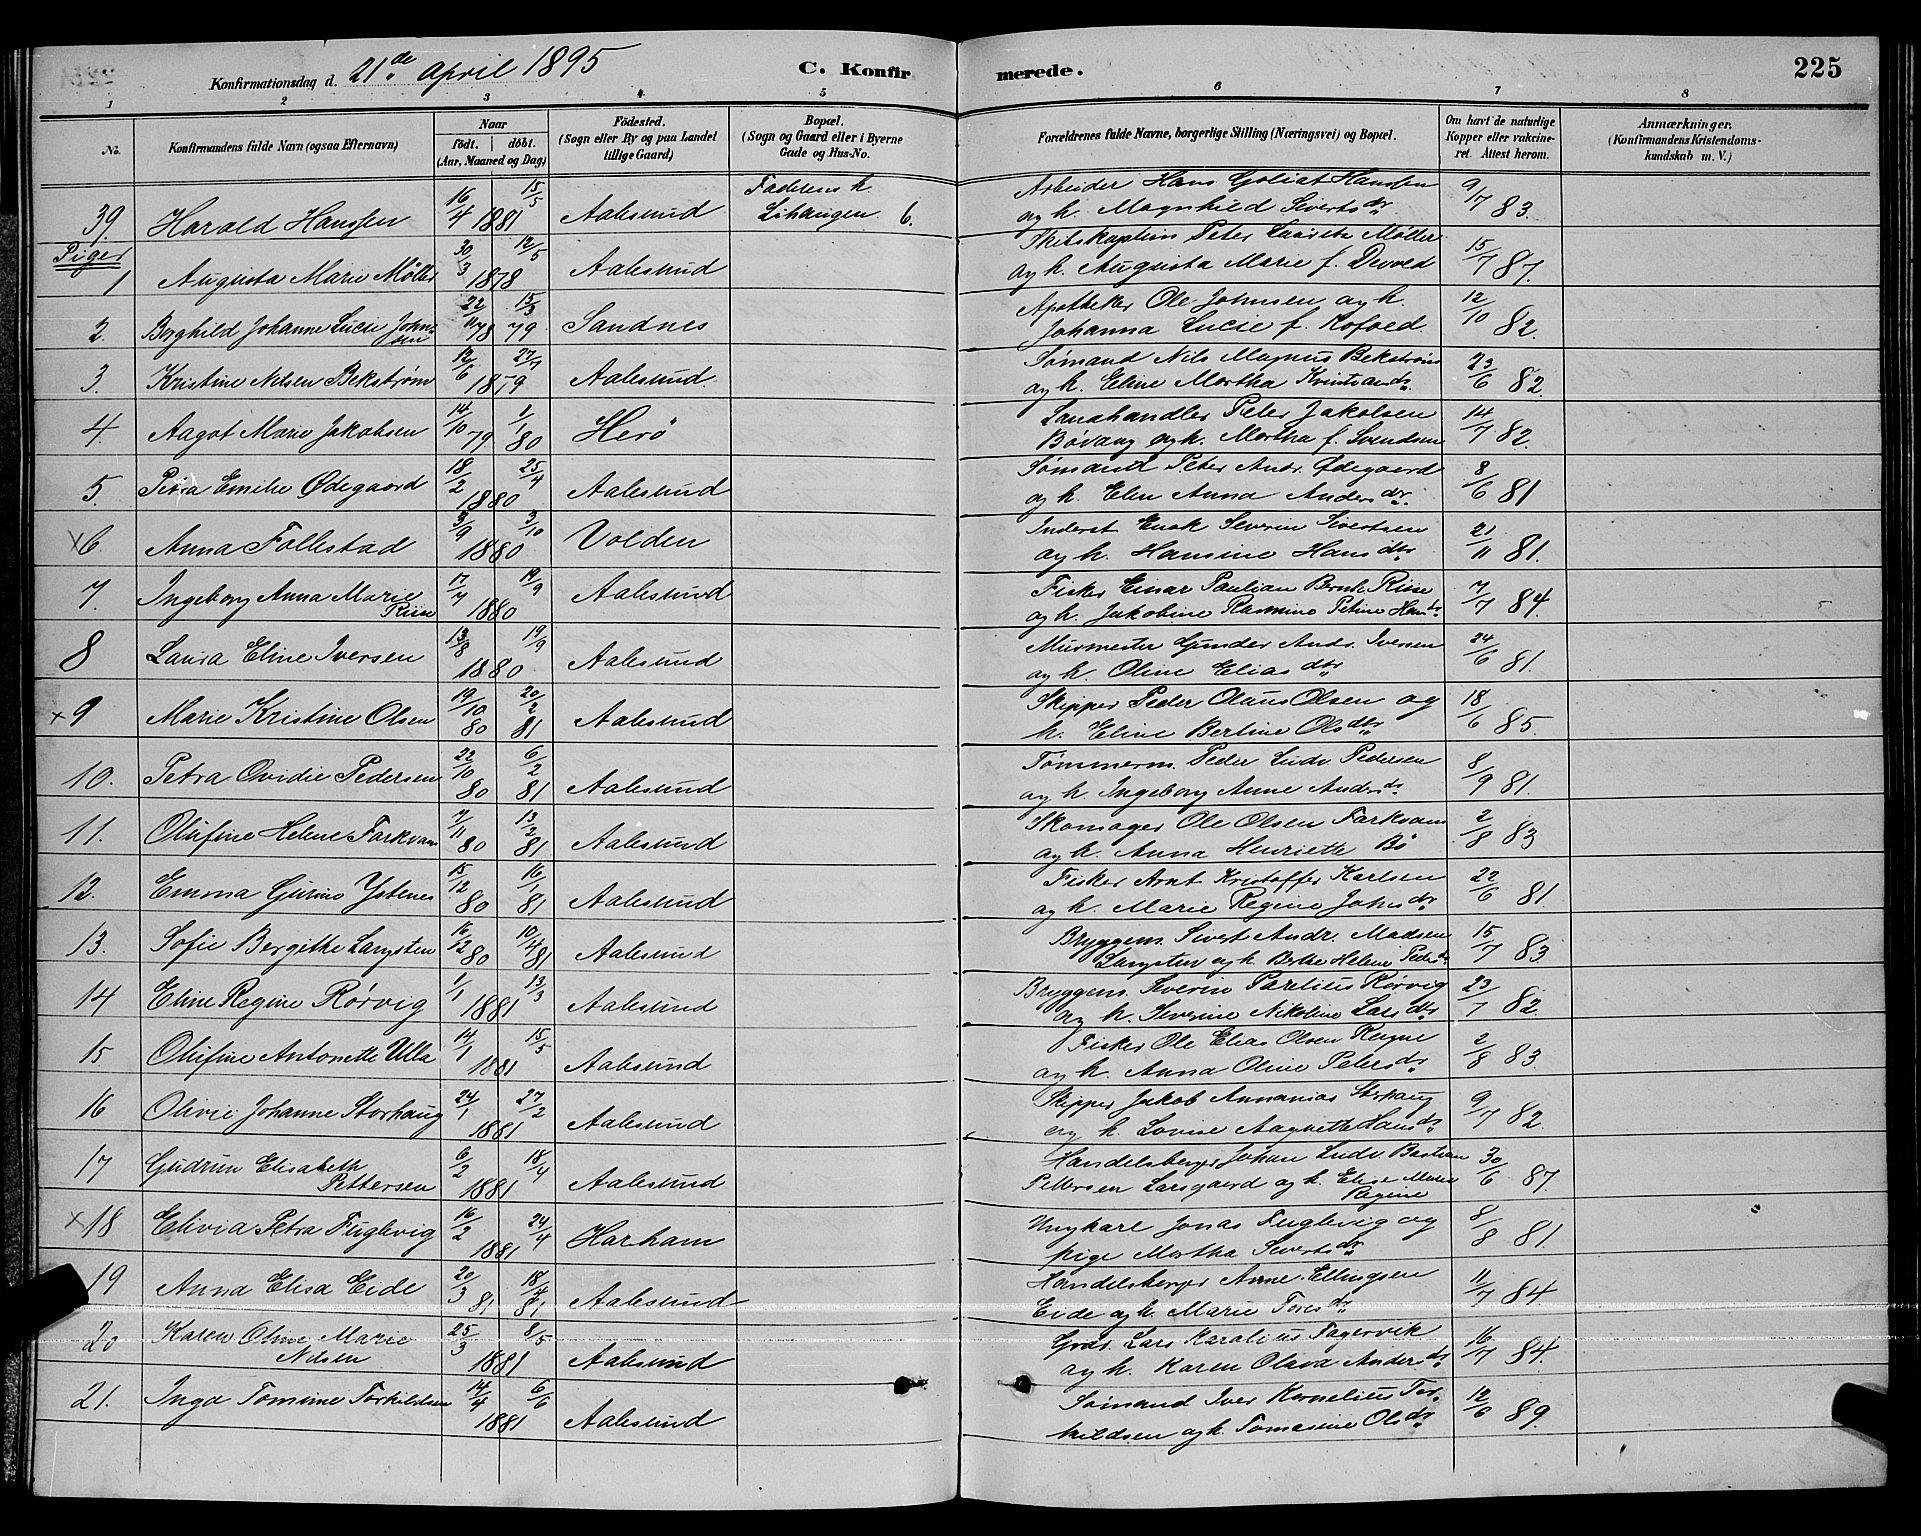 Konfirmationsdag d. 21de April 1895 C. Konfirmerede. 225
1 2 3 4 5 6 7 8
No. Konfirmandens fulde Navn (ogsaa Efternavn) Naar født. døbt. (Aar, Maaned og Dag) Fødested. (Sogn eller By og paa Landet tillige Gaard) Bopæl. (Sogn og Gaard eller i Byerne Gade og Hus-No. Forældrenes fulde Navne, borgerlige Stilling (Næringsvei) og Bopæl. Om havt de naturlige Kopper eller vakcineret. Attest herom. Anmærkninger. (Konfirmandens Kristendomskundskab m. V.)
39 Harald Hanssen 16/4 1881 15/5 Aalesund Faderens h. Lihaugen 6. Arbeider Hans Goliat Hanssen og h. Magnhild Sivertsdr 9/7 83.
Piger
1 Augusta Marie Møller 30/3 1878 12/5 Aalesund Skibskaptein Peter Møller og h. Augusta Marie f. Devold 15/7 87.
2. Borghild Johanne Lucie Johnsen 22/11 78 15/3 79 Sandnes Apotheker Ole Johnsen og h. Johanna Lucie f. Kofoed 12/10 82.
3. Kristine Nilsen Bekstrøm 12/6 1879 27/7 Aalesund Sømand Nils Magnus Bekstrøm og h. Eline Martha Kristiansdr 23/6 82.
4. Aagot Marie Jakobsen 14/10 79 1/1 80 Herö Landhandler Peter Jakobsen og h. Martha f. Svendsen 14/7 82.
5. Petra Emilie Ødegaard 18/2 1880 25/4 Aalesund Sømand Peter Andr. Ødegaard og h. Elen Anna Andersdr. 8/6 81
x6. Anna Follestad 3/9 1880 3/10 Volden Inderst Enok Severin Sivertsen og h. Hansine Hansdtr 21/11 81.
7. Ingeborg Anna Marie Riise 17/7 1880 19/9 Aalesund Fisker Einar Paulian Bernh. Riise og h. Jakobine Petrine Hansdr. 7/7 84.
8 Laura Eline Iversen 13/8 1880 19/9 Aalesund Murmester Gunder Andr. Iversen og h. Oline Eliasdtr 24/6 81.
x9 Marie Kristine Olsen 19/10 80 20/2 81 Aalesund Skipper Peder Olaus Olsen og h. Eline Bertine Olsdtr. 18/6 85.
10. Petra Ovidie Pedersen 22/10 80 6/2 81 Aalesund Tømmerm. Peder Ludv. Pedersen og h. Ingeborg Anne Andersdr 8/9 81.
11. Olufine Helene Farkvam 7/11 80 13/2 81 Aalesund Skomager Ole Olsen Farkvam og h. Anna Henriette Bö 2/8 83
12. Emma Gurine Ystenes 15/12 80 16/1 81 Aalesund Fisker Arnt Kristoffer Karlsen og h. Marie Regine Johsdr 22/6 81.
13. Sofie Bergitte Langsten 16/12 80 10/4 81 Aalesund Bryggem. Sivert Andr. Madsen Langsten og h. Berthe Helene Pedersdr. 15/7 83.
14 Eline Regine Rørvig 1/1 1881 13/3 Aalesund Bryggem. Severin Rørvig og h. Severine Nikoline Larsdtr 23/7 82.
15 Olufine Antonette Ulla 14/1 1881 15/5 Aalesund Fisker Ole Elias Olsen og h. Anna Oline Petersdr 2/8 83.
16 Olivie Johanne Storhaug 24/1 1881 27/2 Aalesund Skipper Jakob Annanias Storhaug og h. Lovise Aagnette Hansdr 9/7 82.
17 Gudrun Elisabeth Pettersen 6/2 1881 18/4 Aalesund Handelsborger Johan Ludv. Bastian Pettersen Larsgaard og h. Elise Marie Regine 30/6 87.
x18 Elivia Petra Fuglevig 16/2 1881 24/4 Harham Ungkarl Jonas Fuglevig og pige Martha Sivertsdr. 8/8 81.
19 Anna Elisa Eide 20/3 81 18/4 81 Aalesund Handelsborger Arne Ellingsen Eide og h. Marie Toresdr. 11/7 84
20 Karen Oline Marie Nilsen 25/3 1881 8/5 Aalesund Lars Karolius Fagervik og h. Karen Olava Andersdr. 16/7 84.
21. Inga Tomine Torkildsen 14/4 1881 6/6 Aalesund Sømand Iver Kornelius Torkildsen og h. Tomasine Olsdtr 12/6 89.